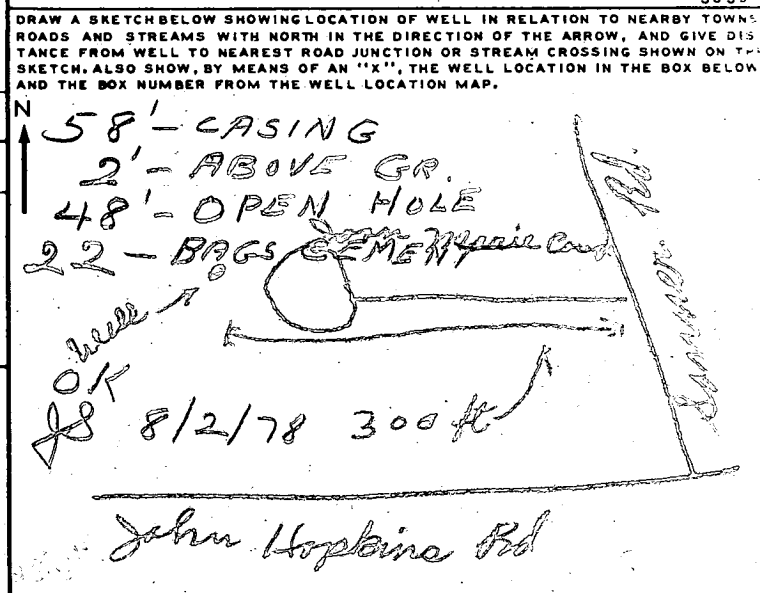 DRAW A SKETCH BELOW SHOWING LOCATION OF WELL IN RELATION TO NEARBY TOWNS
ROADS AND STREAMS WITH NORTH IN THE DIRECTION OF THE ARROW, AND GIVE DIS
TANCE FROM WELL TO NEAREST ROAD JUNCTION OR STREAM CROSSING SHOWN ON THE
SKETCH. ALSO SHOW, BY MEANS OF AN "X", THE WELL LOCATION IN THE BOX BELOW
AND THE BOX NUMBER FROM THE WELL LOCATION MAP.
N
58'- CASING
2'- ABOVE GR.
48'- OPEN HOLE
22 - BAGS CEMENT
Marie
Rd.
Well
OK
JS 8/2/78 300 ft
John Hopkins Rd